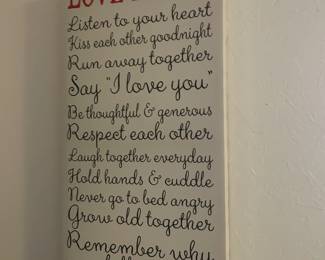 LOVE
Listen to your heart
Kiss each other goodnight
Run away together
Say "I love you"
Be thoughtful & generous
Respect each other
Laugh together everyday
Hold hands & cuddle
Never go to bed angry
Grow old together
Remember why